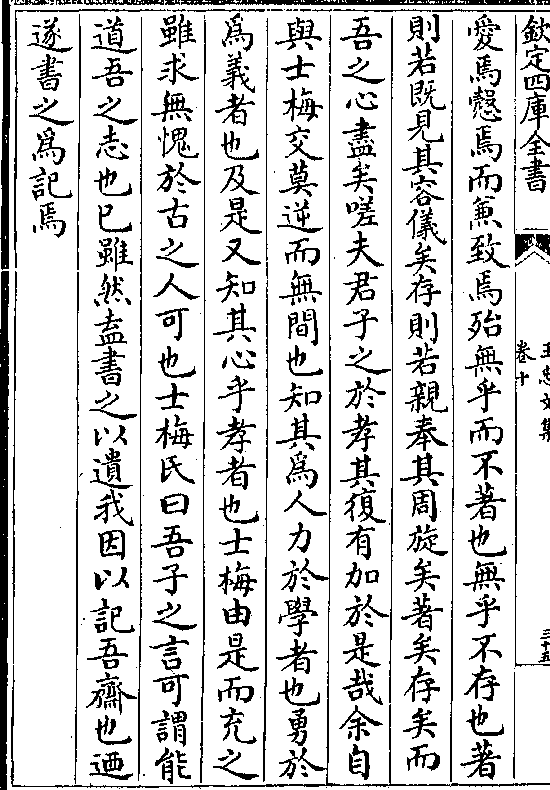 欽定四庫全書
王忠文集
卷十
三十五
愛焉慤焉而兼致焉殆無乎而不著也無乎不存也著
則若既見其容儀矣存則若親奉其周旋矣著矣存矣而
吾之心盡矣嗟夫君子之於孝其復有加於是哉余自
與士梅交莫逆而無間也知其為人力於學者也勇於
為義者也及是又知其心乎孝者也士梅由是而充之
雖求無愧於古之人可也士梅氏曰吾子之言可謂能
道吾之志也已雖然盍書之以遺我因以記吾齋也迺
遂書之為記焉